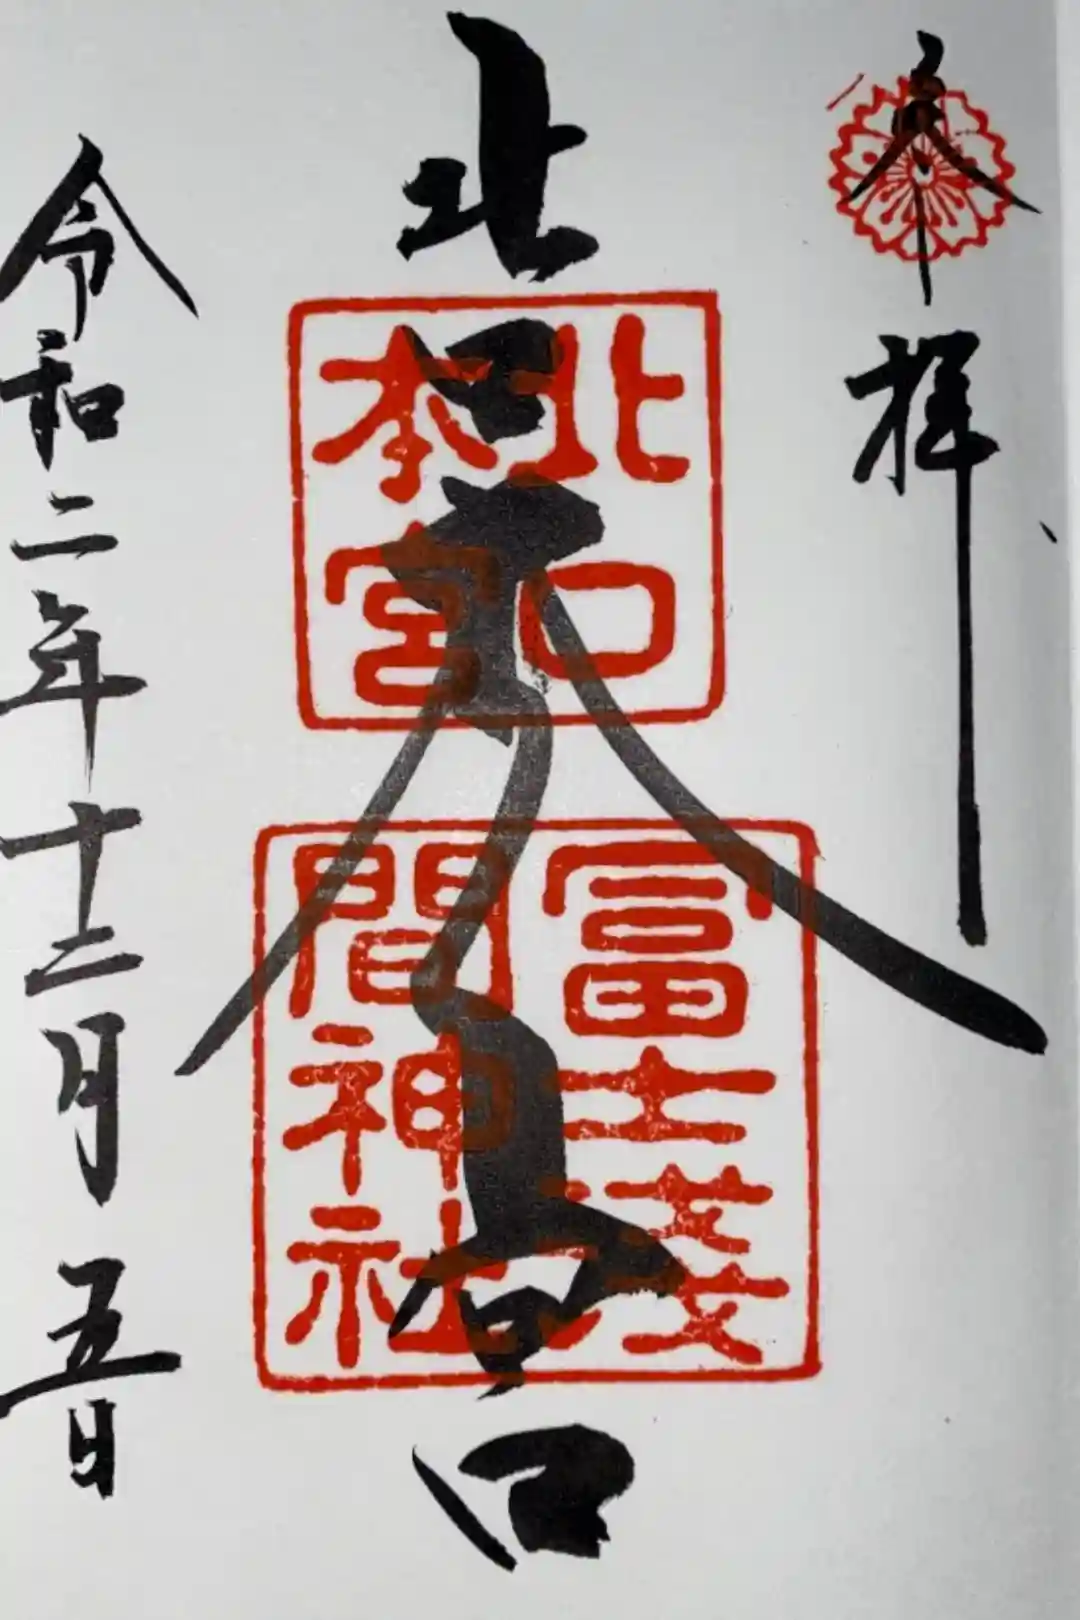 奉拝
北口本宮
北口
本宮
冨士浅
間神社
令和二年十二月五日